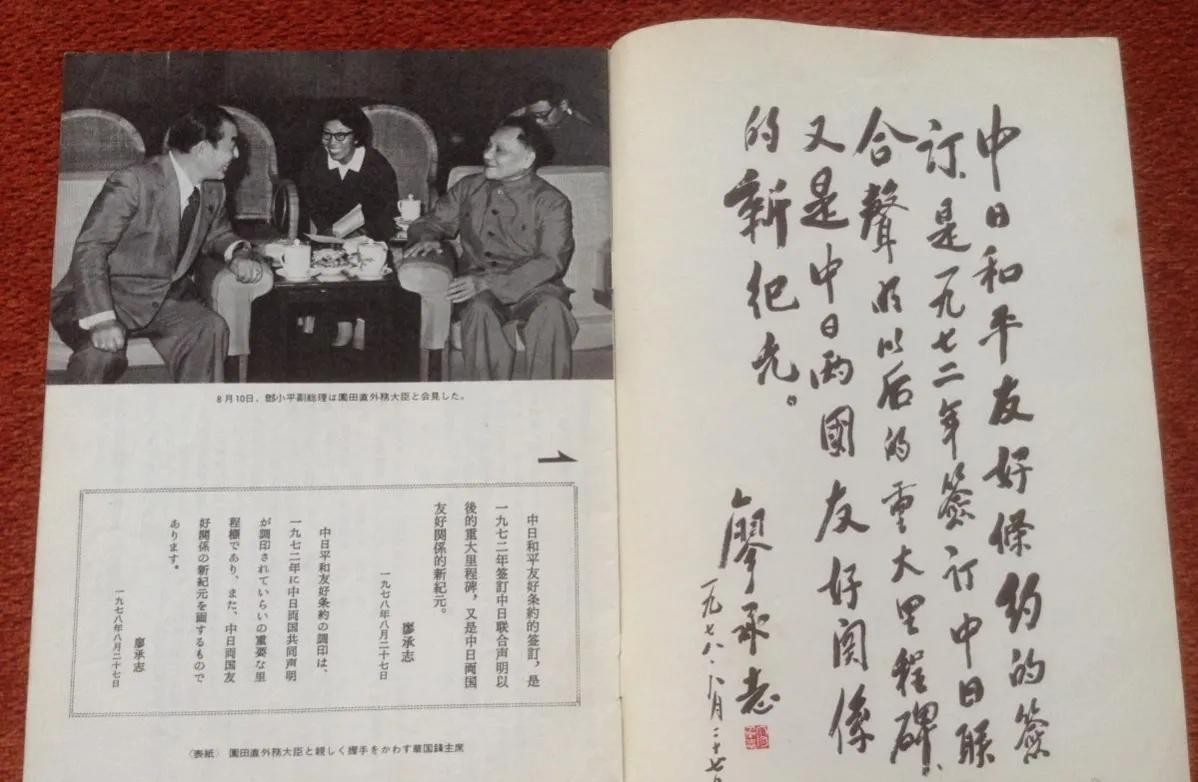 8月10日、鄧小平副総理は園田直外務大臣と会見した。
1
中日和平友好条約的签訂，是
一九七二年签訂中日联合声明以
後的重大里程碑，又是中日両国
友好関係的新紀元。
廖承志
一九七八年八月二十七日
中日平和友好条約の調印は、
一九七二年に中日両国共同声明
が調印されていらいの重要な里
程標であり、また、中日両国友
好関係の新紀元を画するもので
あります。
廖承志
一九七八年八月二十七日
〈表紙〉 園田直外務大臣と親しく握手をかわす華国鋒主席
中日和平友好條约的簽
订是一九七二年簽订中日联
合聲明以后的重大里程碑、
又是中日两國友好関係
的新纪元。
廖承志
一九七八.八月二十七